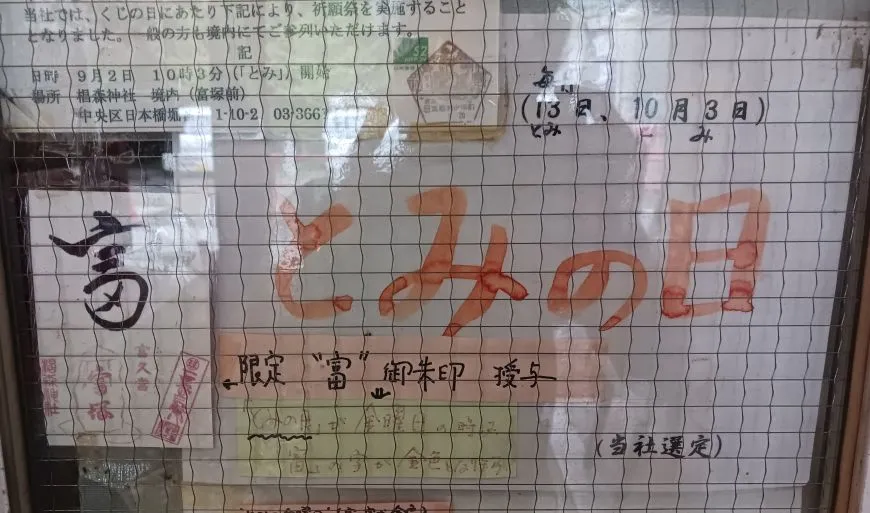 当社では、くじの日にあたり下記により、祈願祭を実施すること
となりました。一般の方も境内にてご参列いただけます。
記
日時 9月2日 10時3分(「とみ」)開始
場所 椙森神社 境内(富塚前)
中央区日本橋堀 1-10-2 03-366
毎
(13日、10月3日)
とみ と み
とみの日
富
富久者
富搭
椙森神社
←限定 "富" 御朱印 授与
が金曜日の時は
富」の字が金色
(当社選定)